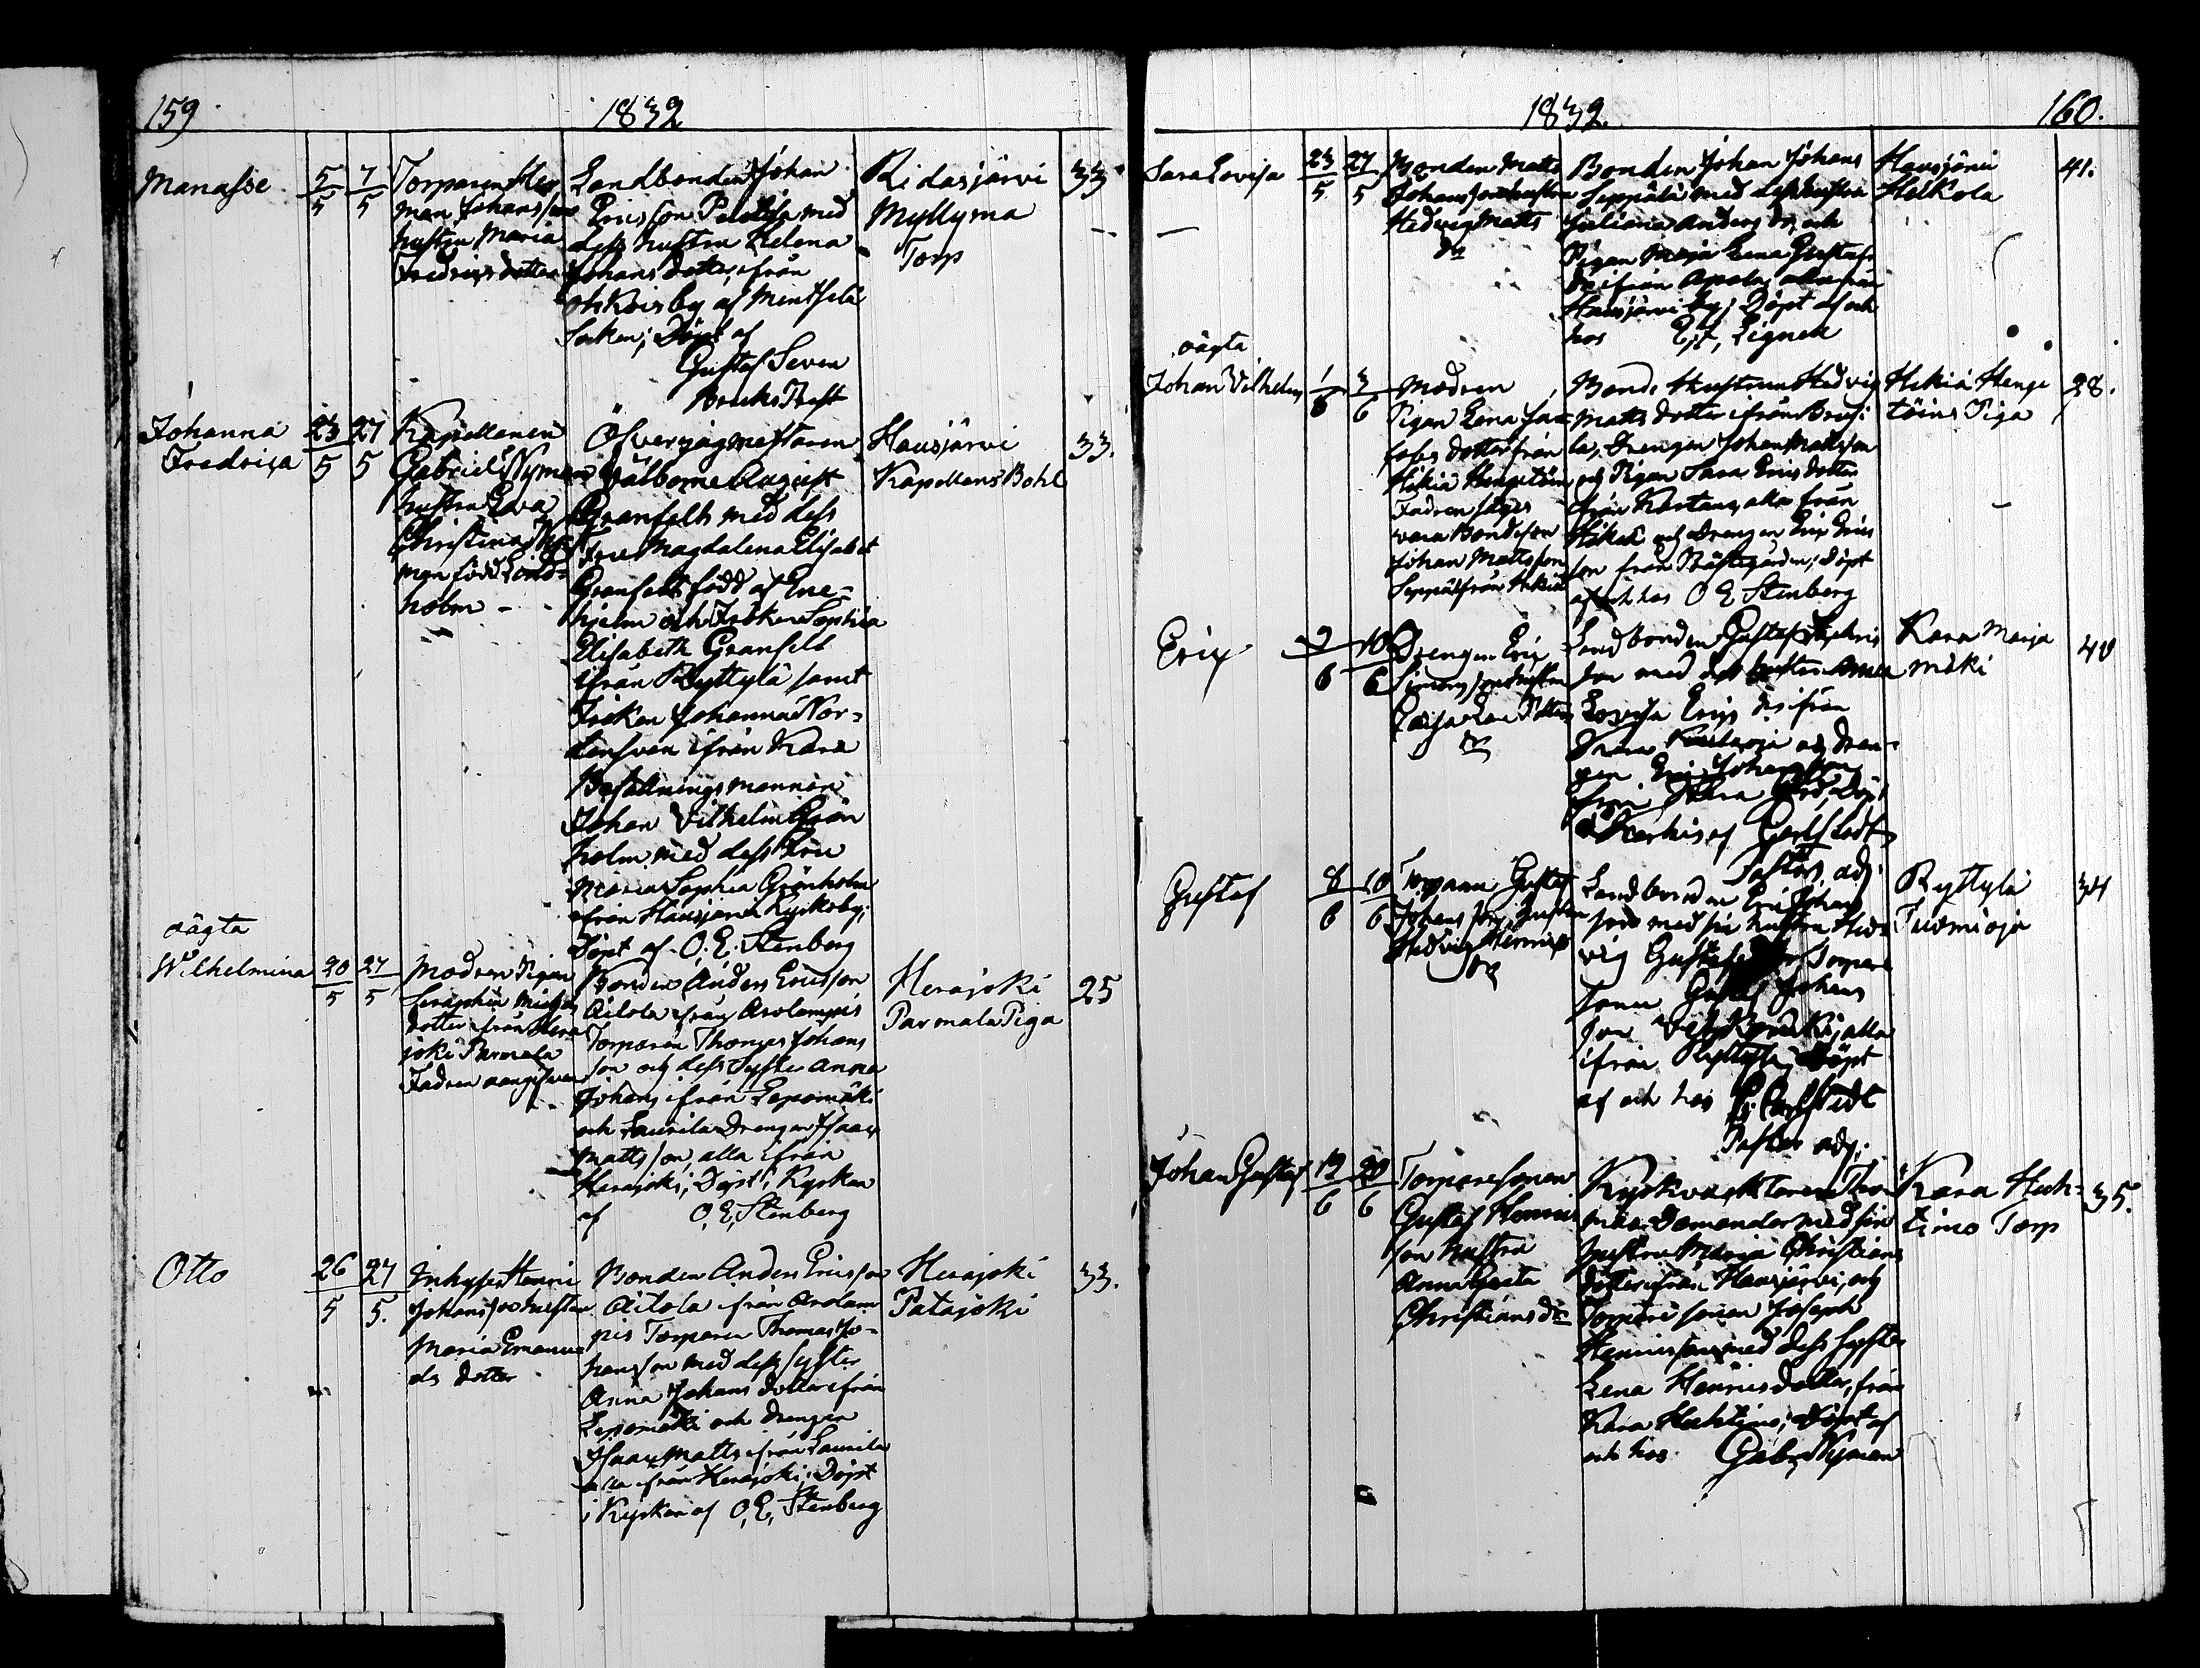 159 1832
Manasse 5/5 7/5
Torparen Her
man Johansson
hustru Maria
Fredrics dotter
Landbonden Johan
Ericsson med
dess hustru Helena
Johans dotter ifrån
by af Mentsälä
Socken; Döpt af
Gustaf Seven
Bruks Prest
Ridasjärvi
Myllyma
Torp
33
Johanna
Fredrica
23/5 27/5
Kapellanen
Gabriel Nyman
hustru Eva
Christina Ny
man född Lind-
holm
Öfverjägmästaren
Välborne August
Granfelt med dess
Fru Magdalena Elisabet
Granfelt född af Ene-
hjelm och Fröken Sophia
Elisabeth Granfelt
ifrån Ryttylä samt
Fröken Johanna Nor-
densvan ifrån Kara
Befallningsmannen
Johan Vilhelm Grön
holm med dess Fru
Maria Sophia Grönholm
ifrån Hausjärvi Kyrkoby;
Döpt af O. E. Stenberg
Hausjärvi
Kapellans Bohl
33.
oägta
Wilhelmina 20/5 27/5
Modren Pigan
Seraphia Michels
dotter från Hera
joki Parmala
Fadren oangifven
Bonden Anders Ericsson
Aitola ifrån Arolampis
Torparen Thomas Johans
son och dess Syster Anna
Johans ifrån Lepomäki
och Laurila Drengen Isaac
Mattsson, alla ifrån
Herajoki; Döpt i Kyrkan
af O. E. Stenberg
Herajoki
Parmala Piga
25
Otto 26/5 27/5.
Inhyses Henric
Johansson hustru
Maria Emanu
els dotter
Bonden Anders Ericsson
Aitola ifrån Arolam
pis Torparen Thomas Jo-
hansson med dess syster
Anna Johans dotter ifrån
Lepomäki och Drengen
Isaac Matts ifrån Laurila
alla ifrån Herajoki; Döpt
i Kyrkan af O. E. Stenberg
Herajoki
Patajoki
33.
1832. 160.
Sara Lovisa 23/5 27/5
Bonden Matts
Johansson hustru
Hedvig Matts
dr
Bonden Johan Johans
Seppälä med dess hustru
Juliana Anders dr och
Pigan Maja Lena Gustafs
dr ifrån Apola, alla från
Hausjärvi by; Döpt af och
hos E. J. Lignell
Hausjärvi
Heikola
41.
oägta
Johan Vilhelm 1/6 3/6
Modren
Pigan Lena Ja=
cobs dotter från
Hikiä Hengetöin
Fadren säges
vara Bondeson
Johan Mattsson
Seppä från Hikiä
Bonde Hustrun Hedvig
Matts dotter ifrån
la, Drengen Johan Mattsson
och Pigan Sara Erics dotter
ifrån Kartano, alla från
Hikiä och Drengen Eric Erics
son från Prästegården; Döpt
af och hos O E Stenberg
Hikiä Henge
töins Piga
28.
Eric 9/6 10/6
Drengen Eric
Simonsson hustru
Caisa Lovisa
dr
Landbonden Gustaf Henrics
son med dess hustru Anna
Lovisa Erics dr ifrån
Kara och Dren-
gen Eric Johansson
från Kara Gård, Döpt
i af Carlstedt
Pastors adj.
Kara Marja
mäki
40
Gustaf 8/6 10/6
Torparen Gustaf
Johansson; hustru
Hedvig Henrics
dr
Landbonden Eric Johans
son med sin hustru Hed
vig Gustafs dr Torpare
sonen Gustaf Johans
son alla
ifrån Ryttylä; Döpt
af och hos Carlstedt
Pastors adj:
Ryttylä
Tuomioja
34
Johan Gustaf 19/6 20/6
Torparesonen
Gustaf Henrics
son hustru
Anna Greta
Christians dr
Kyrkovaktaren Tho
mas Domander med sin
hustru Maria Christians
dotter ifrån Hausjärvi, och
Torpare sonen Joseph
Henricsson med dess syster
Lena Henrics dotter, från
Kara Huhtimo; Döpt af
och hos Gabr. Nyman
Kara Huh=
timo Torp
35.